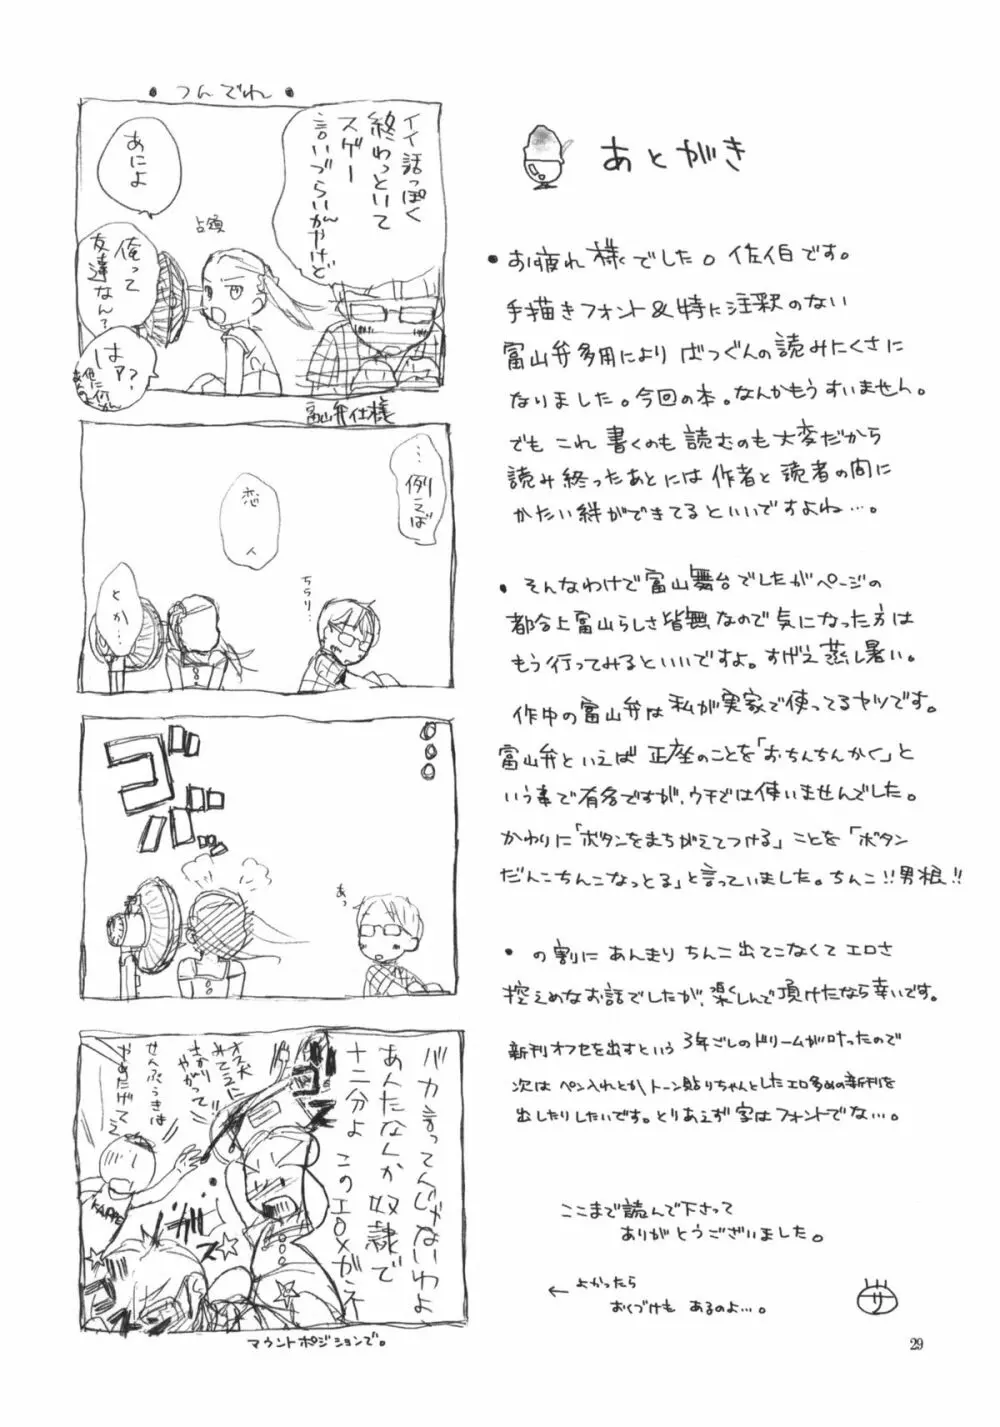 あとがき
・お疲れ様でした。佐伯です。
手描きフォント&特に注釈のない
富山弁多用により ばつぐんの読みにくさに
なりました。今回の本。なんかもうすいません。
でも これ 書くのも 読むのも 大変だから
読み終ったあとには 作者と 読者の間に
かたい絆ができてるといいですよね…。
・そんなわけで富山舞台でしたがページの
都合上富山らしさ皆無なので気になった方は
もう行ってみるといいですよ。すげえ蒸し暑い。
作中の富山弁は私が実家で使ってるヤツです。
富山弁といえば 正座のことを「おちんちんかく」と
いう事で有名ですが、ウチでは使いませんでした。
かわりに「ボタンをまちがえてつける」ことを「ボタン
だんこちんこなっとる」と言っていました。ちんこ!!男根!!
・の割にあんまりちんこ出てこなくてエロさ
控えめなお話でしたが、楽しんで頂けたなら幸いです。
新刊オフセを出すという 3年ごしのドリームが叶ったので
次は ペン入れとか、トーン貼りちゃんとしたエロ多めの新刊を
出したりしたいです。とりあえず字はフォントでな…。
ここまで読んで下さって
ありがとうございました。
← よかったら
おくづけも あるのよ…。
サ
29
・つんでれ・
イイ話っぽく
終わっといて
スゲー
言いづらいんやけど
あによ
占領
俺って
友達なん?
はア?
富山弁仕様
…例えば
恋人
ちらり…
とか…
ゴパッ
あっ
バカ言ってんじゃないわよ
あんたなんか奴隷で
十二分よ このエロメガネ
オス犬
みてえに
さかり
やがって
せんぷうきは
やめたげてぇ
KAPPE
ゴス
ガス
マウントポジションで。